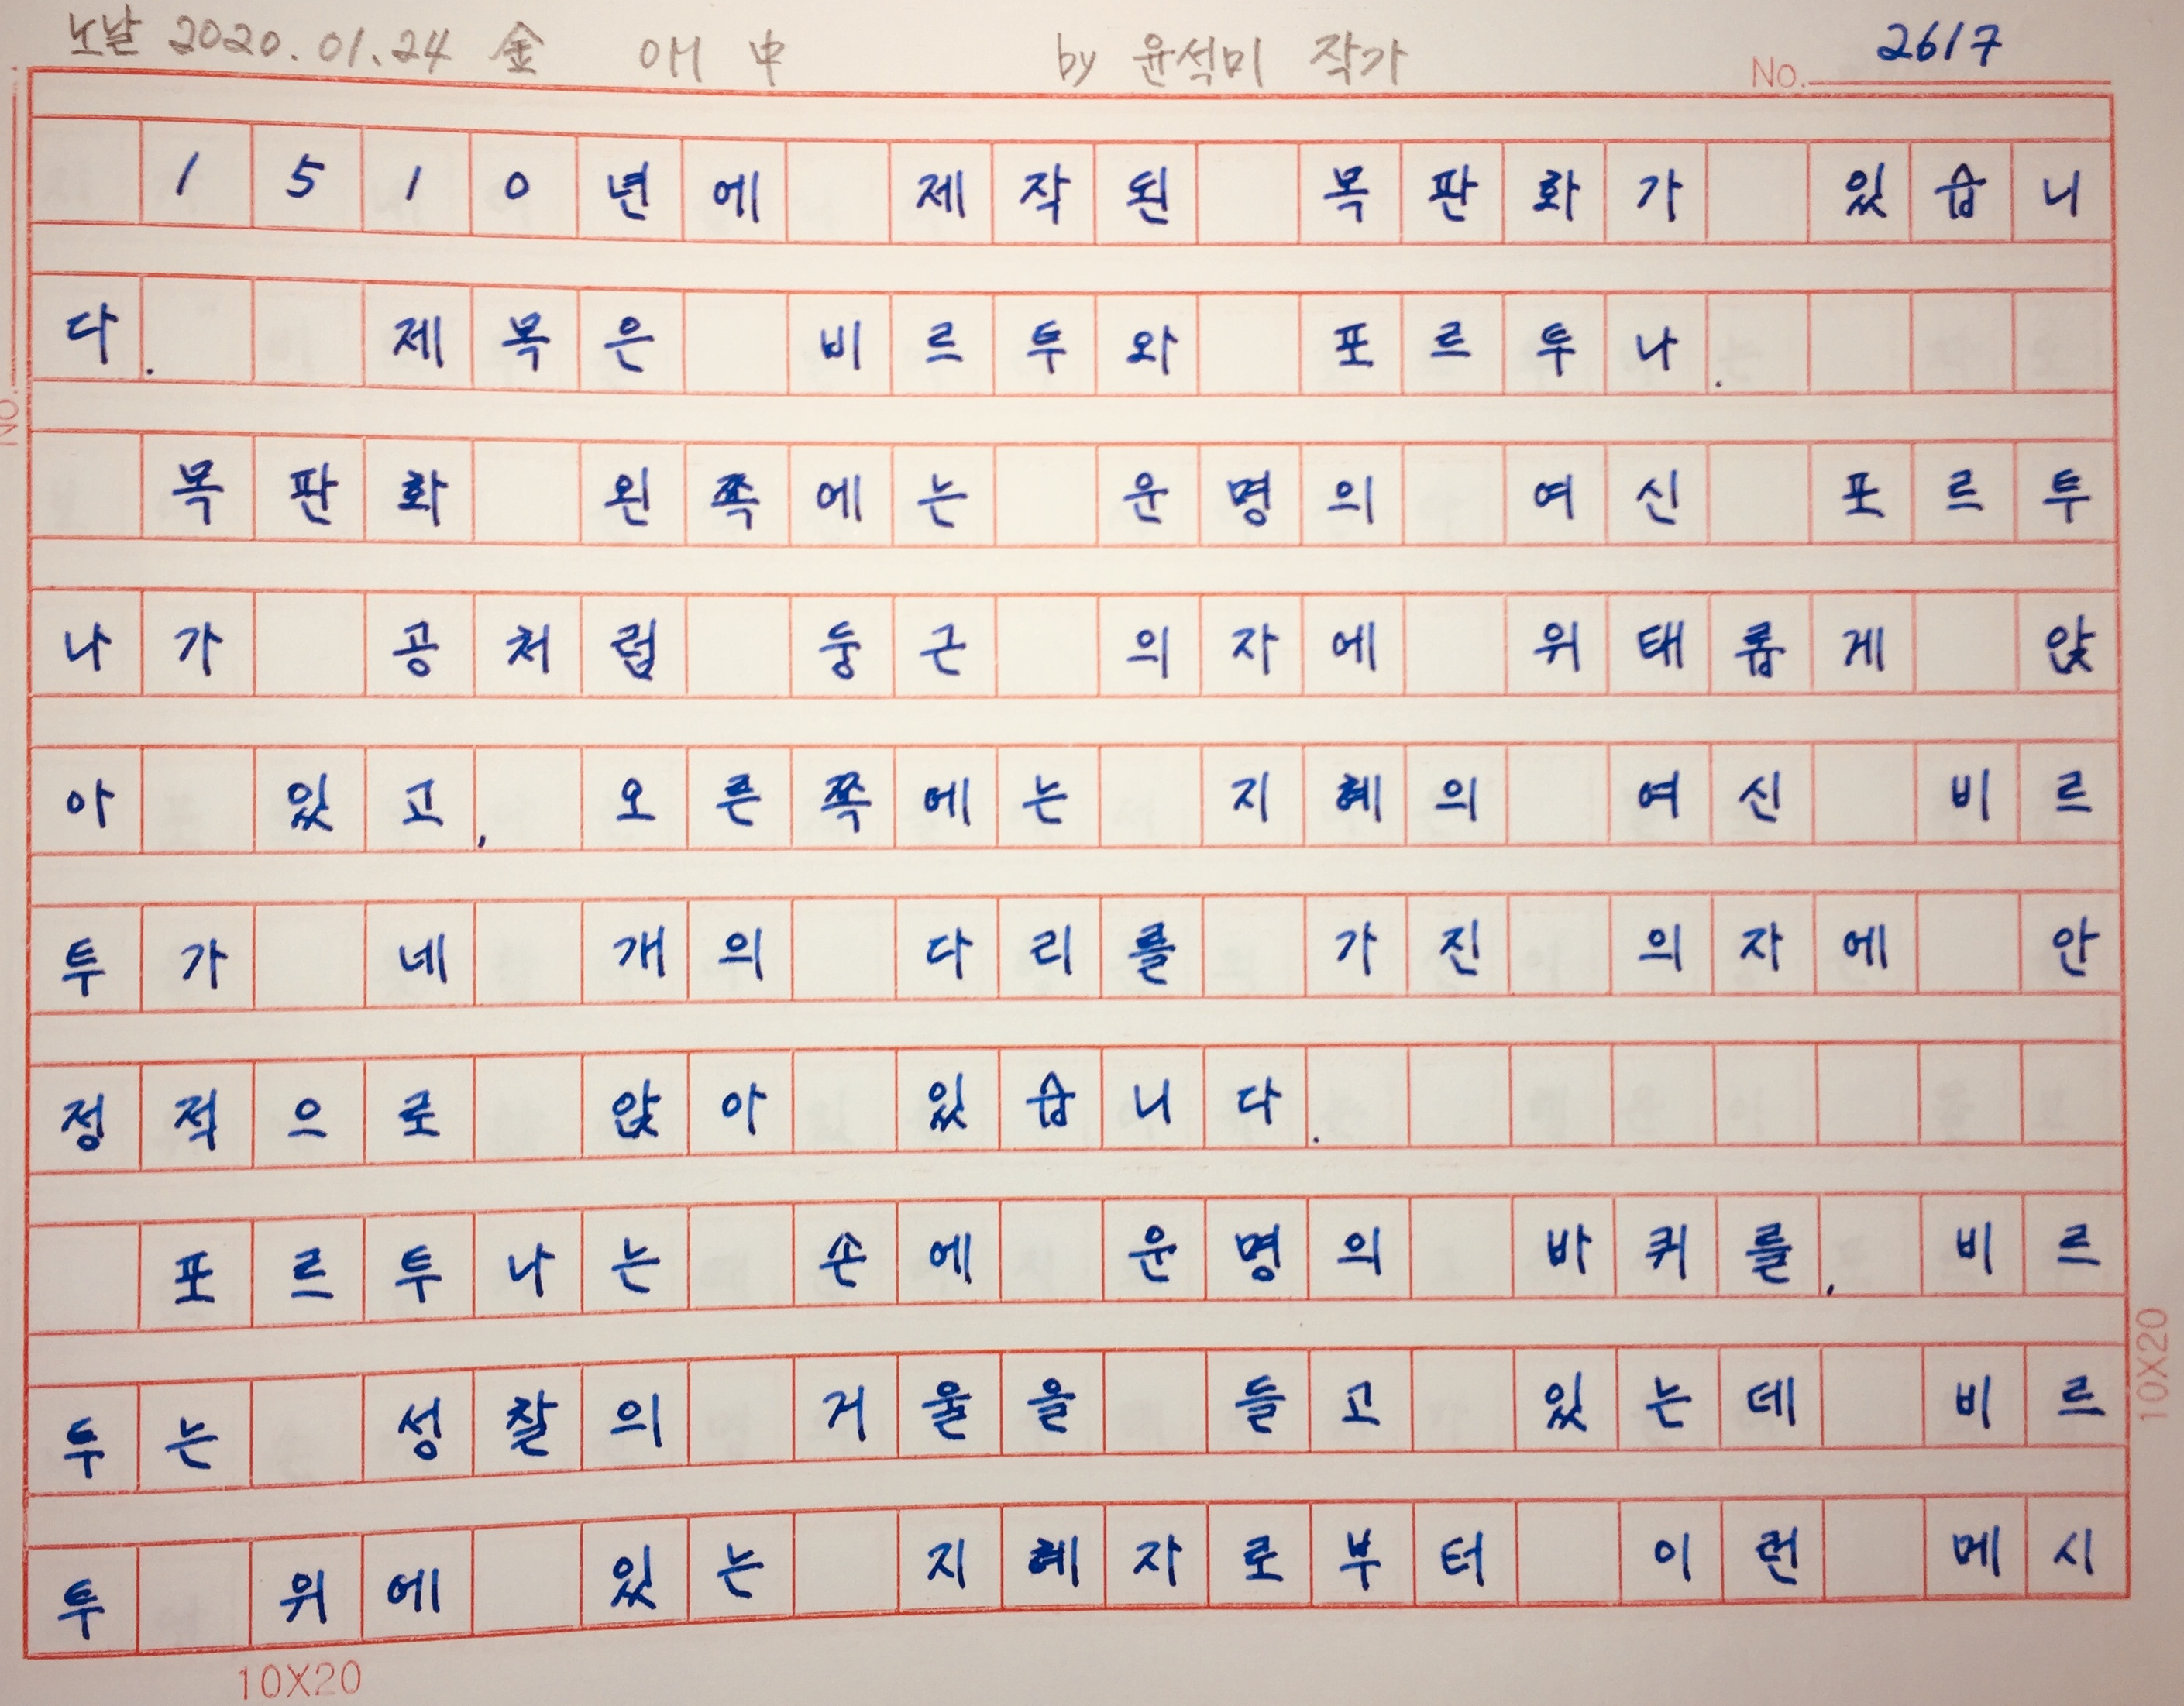 노날 2020.01.24 金 매 中 by 윤석미 작가
No. 2617
1510년에 제작된 목판화가 있습니
다. 제목은 비르투와 포르투나.
목판화 왼쪽에는 운명의 여신 포르투
나가 공처럼 둥근 의자에 위태롭게 앉
아 있고, 오른쪽에는 지혜의 여신 비르
투가 네 개의 다리를 가진 의자에 안
정적으로 앉아 있습니다.
포르투나는 손에 운명의 바퀴를, 비르
투는 성찰의 거울을 들고 있는데 비르
투 위에 있는 지혜자로부터 이런 메시
No.
10X20
10X20